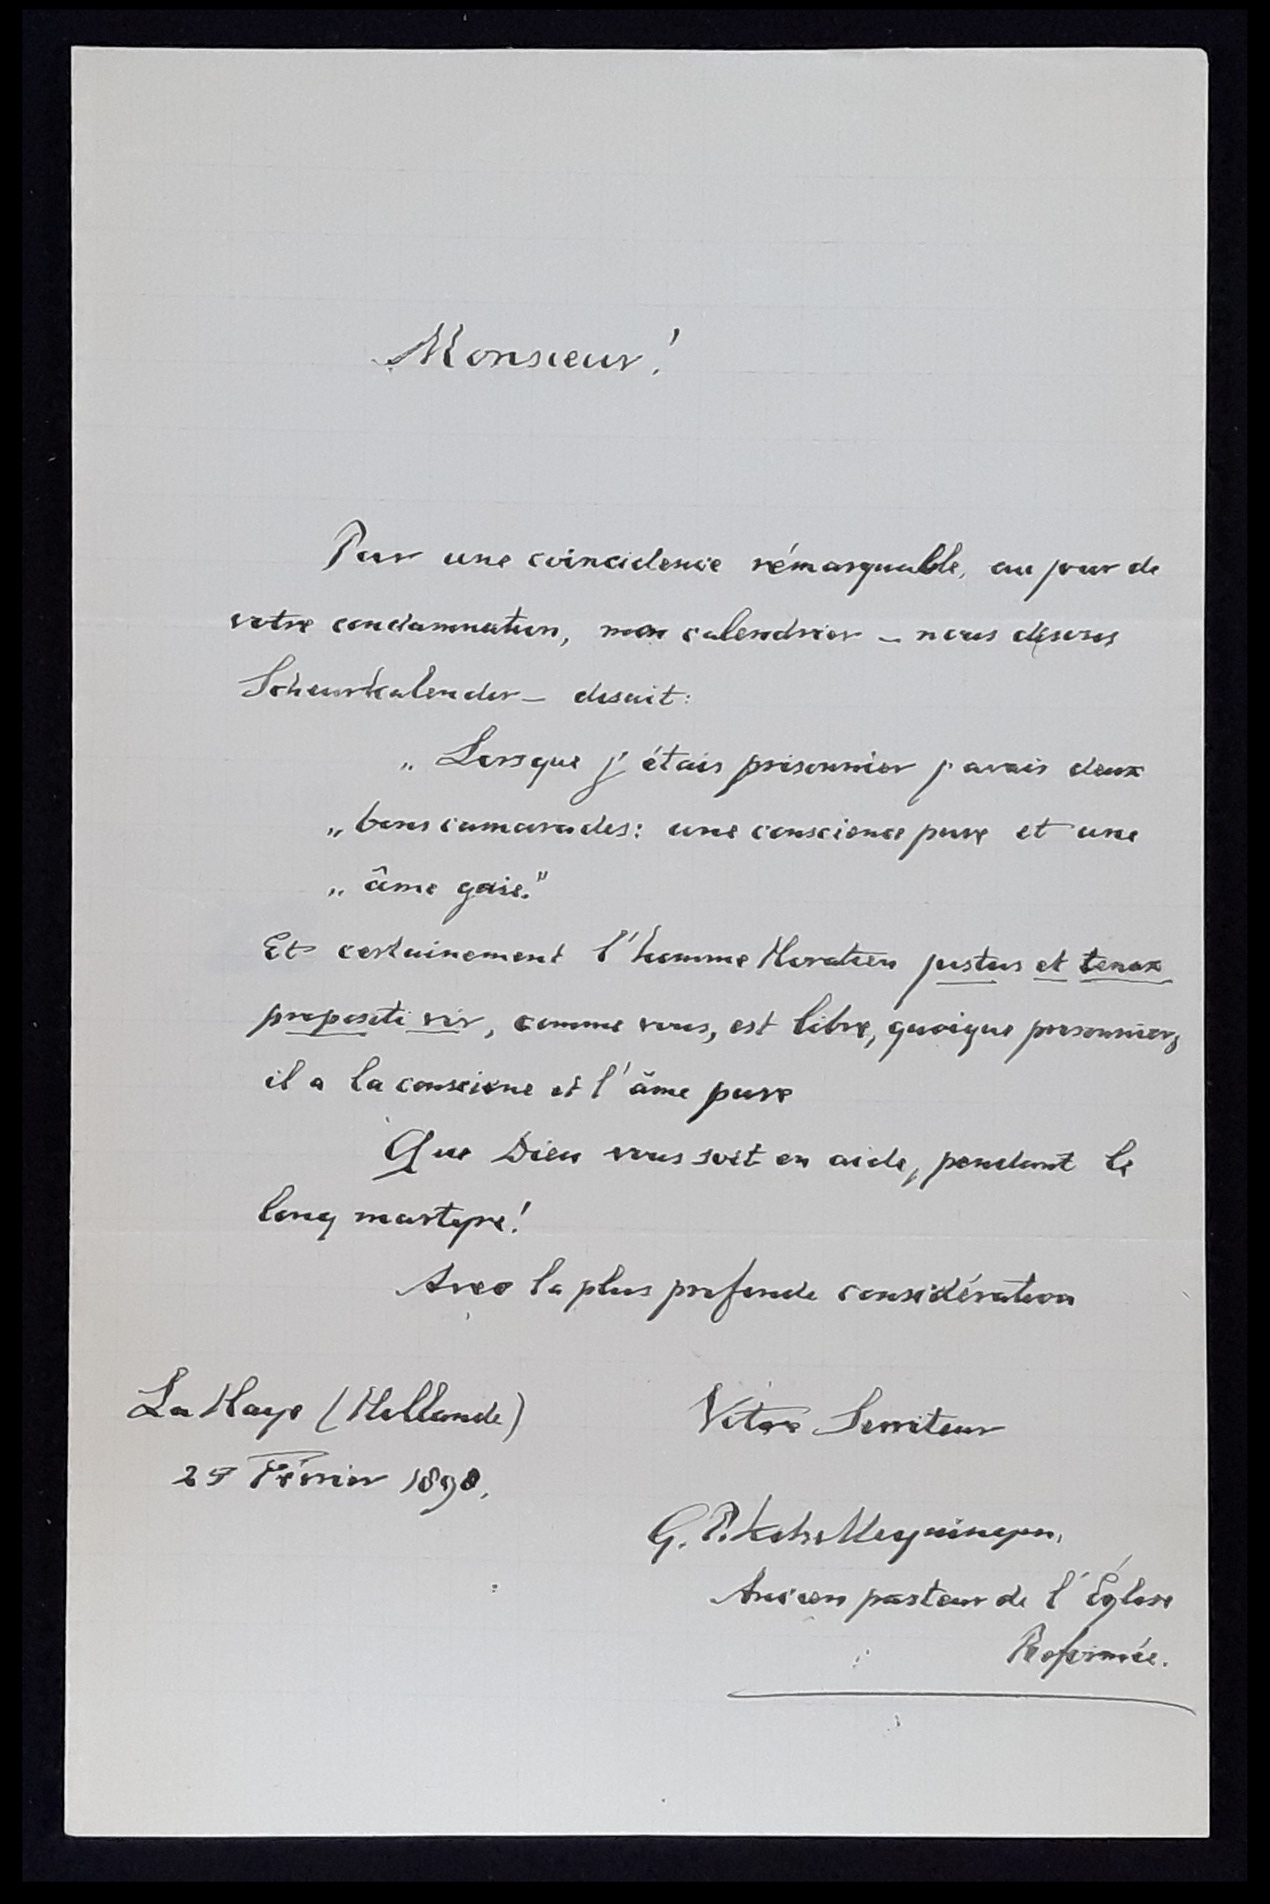 Monsieur!
Par une coincidence rémarquable, au jour de
votre condamnation, mon calendrier – nous disons
Scheurkalender – disait:
„ Lorsque j'étais prisonnier j'avais deux
„ bons camarades: une conscience pure et une
„ âme gaie."
Et certainement l'homme Horatien justus et tenax
propositi vir, comme vous, est libre, quoique prisonnier,
il a la conscience et l'âme pure
Que Dieu vous soit en aide, pendant le
long martyre!
Avec la plus profonde considération
La Haye (Hollande)
Votre Serviteur
Février 1898.
G. P.
Ancien pasteur de l'Église
Reformée.